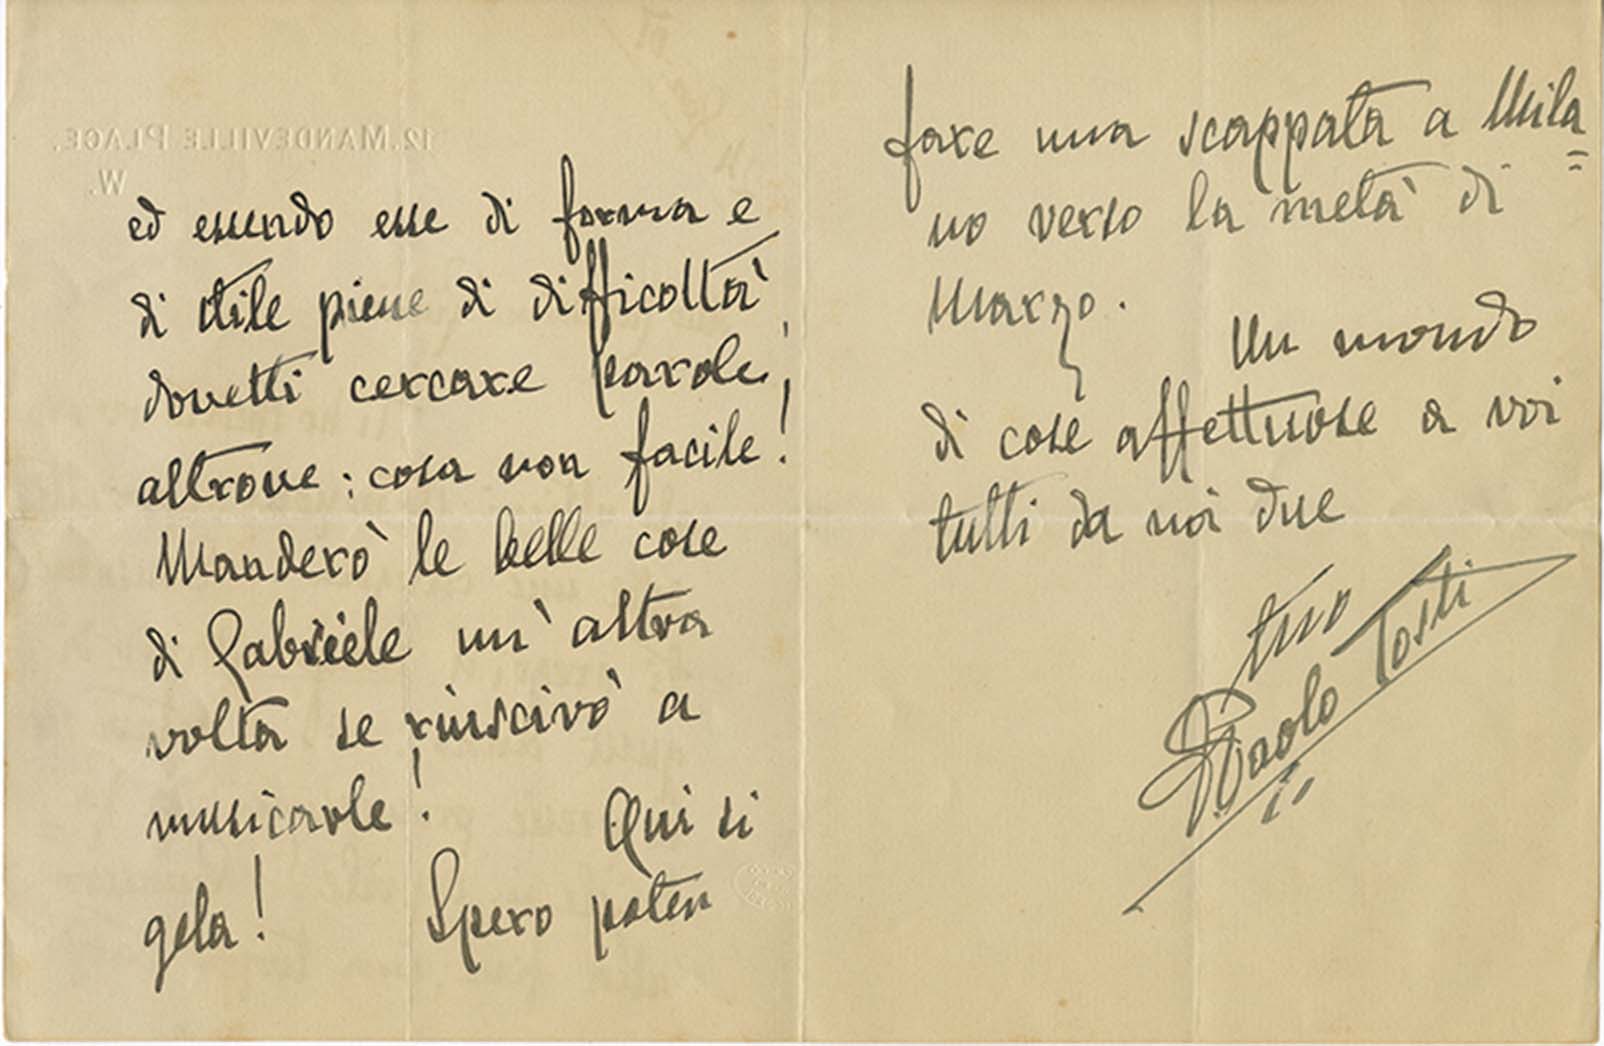 12. MANDEVILLE PLACE,
W.
ed essendo esse di forma e
di stile piene di difficoltà
dovetti cercare parole
altrove: cosa non facile!
Manderò le belle cose
di Gabriele un' altra
volta se riuscirò a
musicarle!
Qui si
gela! Spero poter
fare una scappata a Mila=
no verso la metà di
Marzo.
Un mondo
di cose affettuose a voi
tutti da noi due
tuo
F. Paolo Tosti